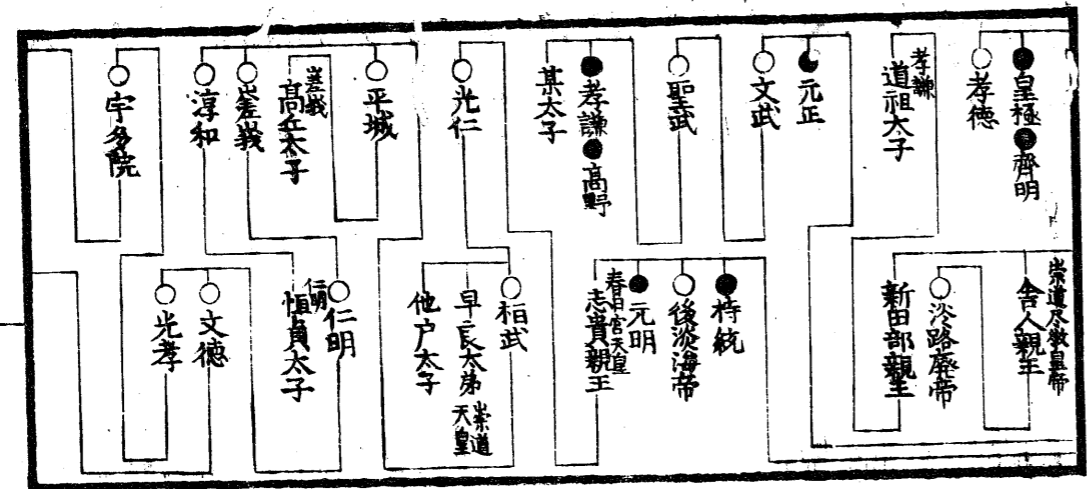 皇極
齊明
孝徳
孝謙
道祖太子
元正
文武
聖武
孝謙
高野
某太子
光仁
平城
嵯峨
高丘太子
嵯峨
淳和
宇多院
崇道尽敬皇帝
舎人親王
淡路廃帝
新田部親王
持統
後淡海帝
元明
春日宮天皇
志貴親王
桓武
早良太弟
崇道
天皇
他戸太子
仁明
仁明
恒貞太子
文徳
光孝